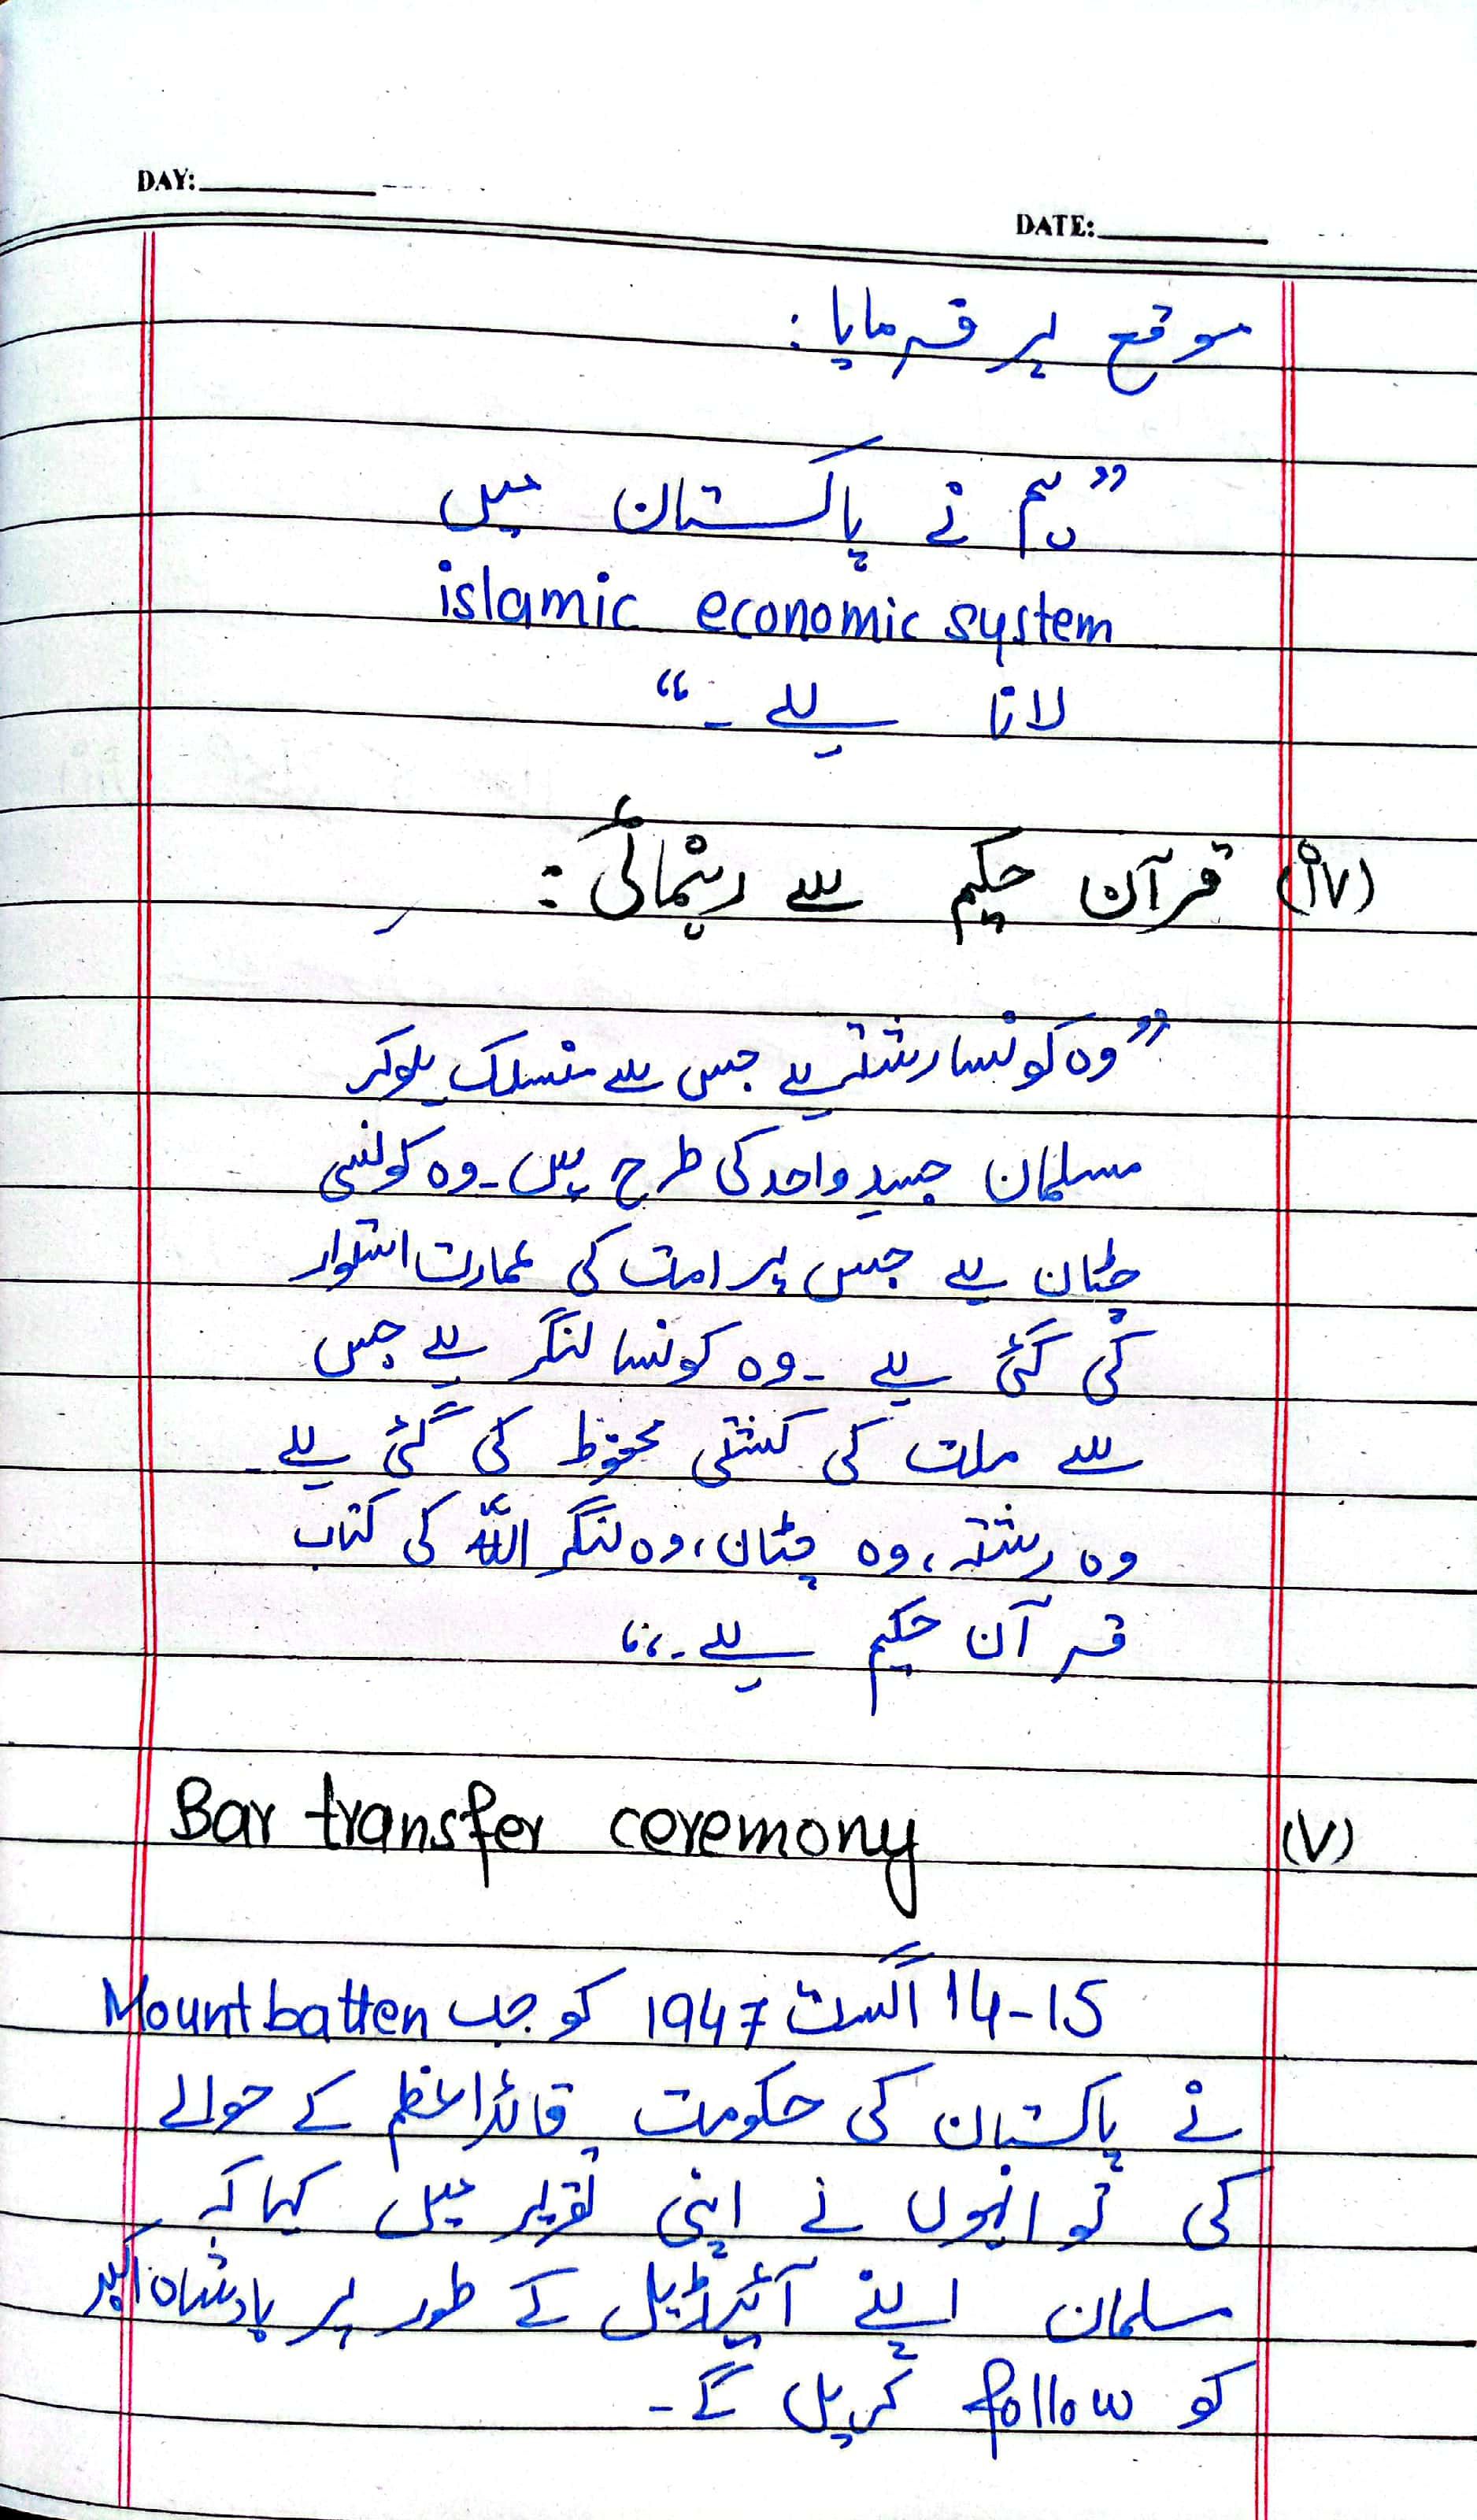 DAY:
DATE:
موقع پر فرمایا:
”ہم نے پاکستان میں
islamic economic system
لانا ہے۔“
(iv) قرآن حکیم سے رہنمائی:
”وہ کونسا رشتہ ہے جس سے منسلک ہوکر
مسلمان جسدِ واحد کی طرح ہیں۔ وہ کونسی
چٹان ہے جس پر امت کی عمارت استوار
کی گئی ہے۔ وہ کونسا لنگر ہے جس
سے ملت کی کشتی محفوظ کی گئی ہے۔
وہ رشتہ، وہ چٹان، وہ لنگر اللہ کی کتاب
قرآن حکیم ہے۔“
(v) Bar transfer ceremony
14-15 اگست 1947 کو جب Mountbatten
نے پاکستان کی حکومت قائداعظم کے حوالے
کی تو انہوں نے اپنی تقریر میں کہا کہ
مسلمان اپنے آئیڈیل کے طور پر بادشاہ اکبر
کو follow کریں گے۔